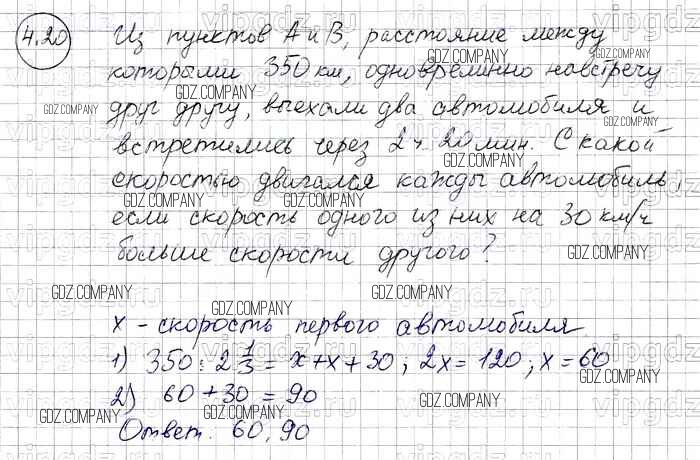 4.20
Из пунктов А и В, расстояние между
которыми 350 км, одновременно навстречу
друг другу, выехали два автомобиля и
встретились через 2 ч 20 мин. С какой
скоростью двигался кажды автомобиль,
если скорость одного из них на 30 км/ч
больше скорости другого?
x - скорость первого автомобиля
1) 350 : 2 1/3 = x + x + 30 ; 2x = 120 ; x = 60
2) 60 + 30 = 90
Ответ. 60, 90
GDZ.COMPANY
vipgdz.ru